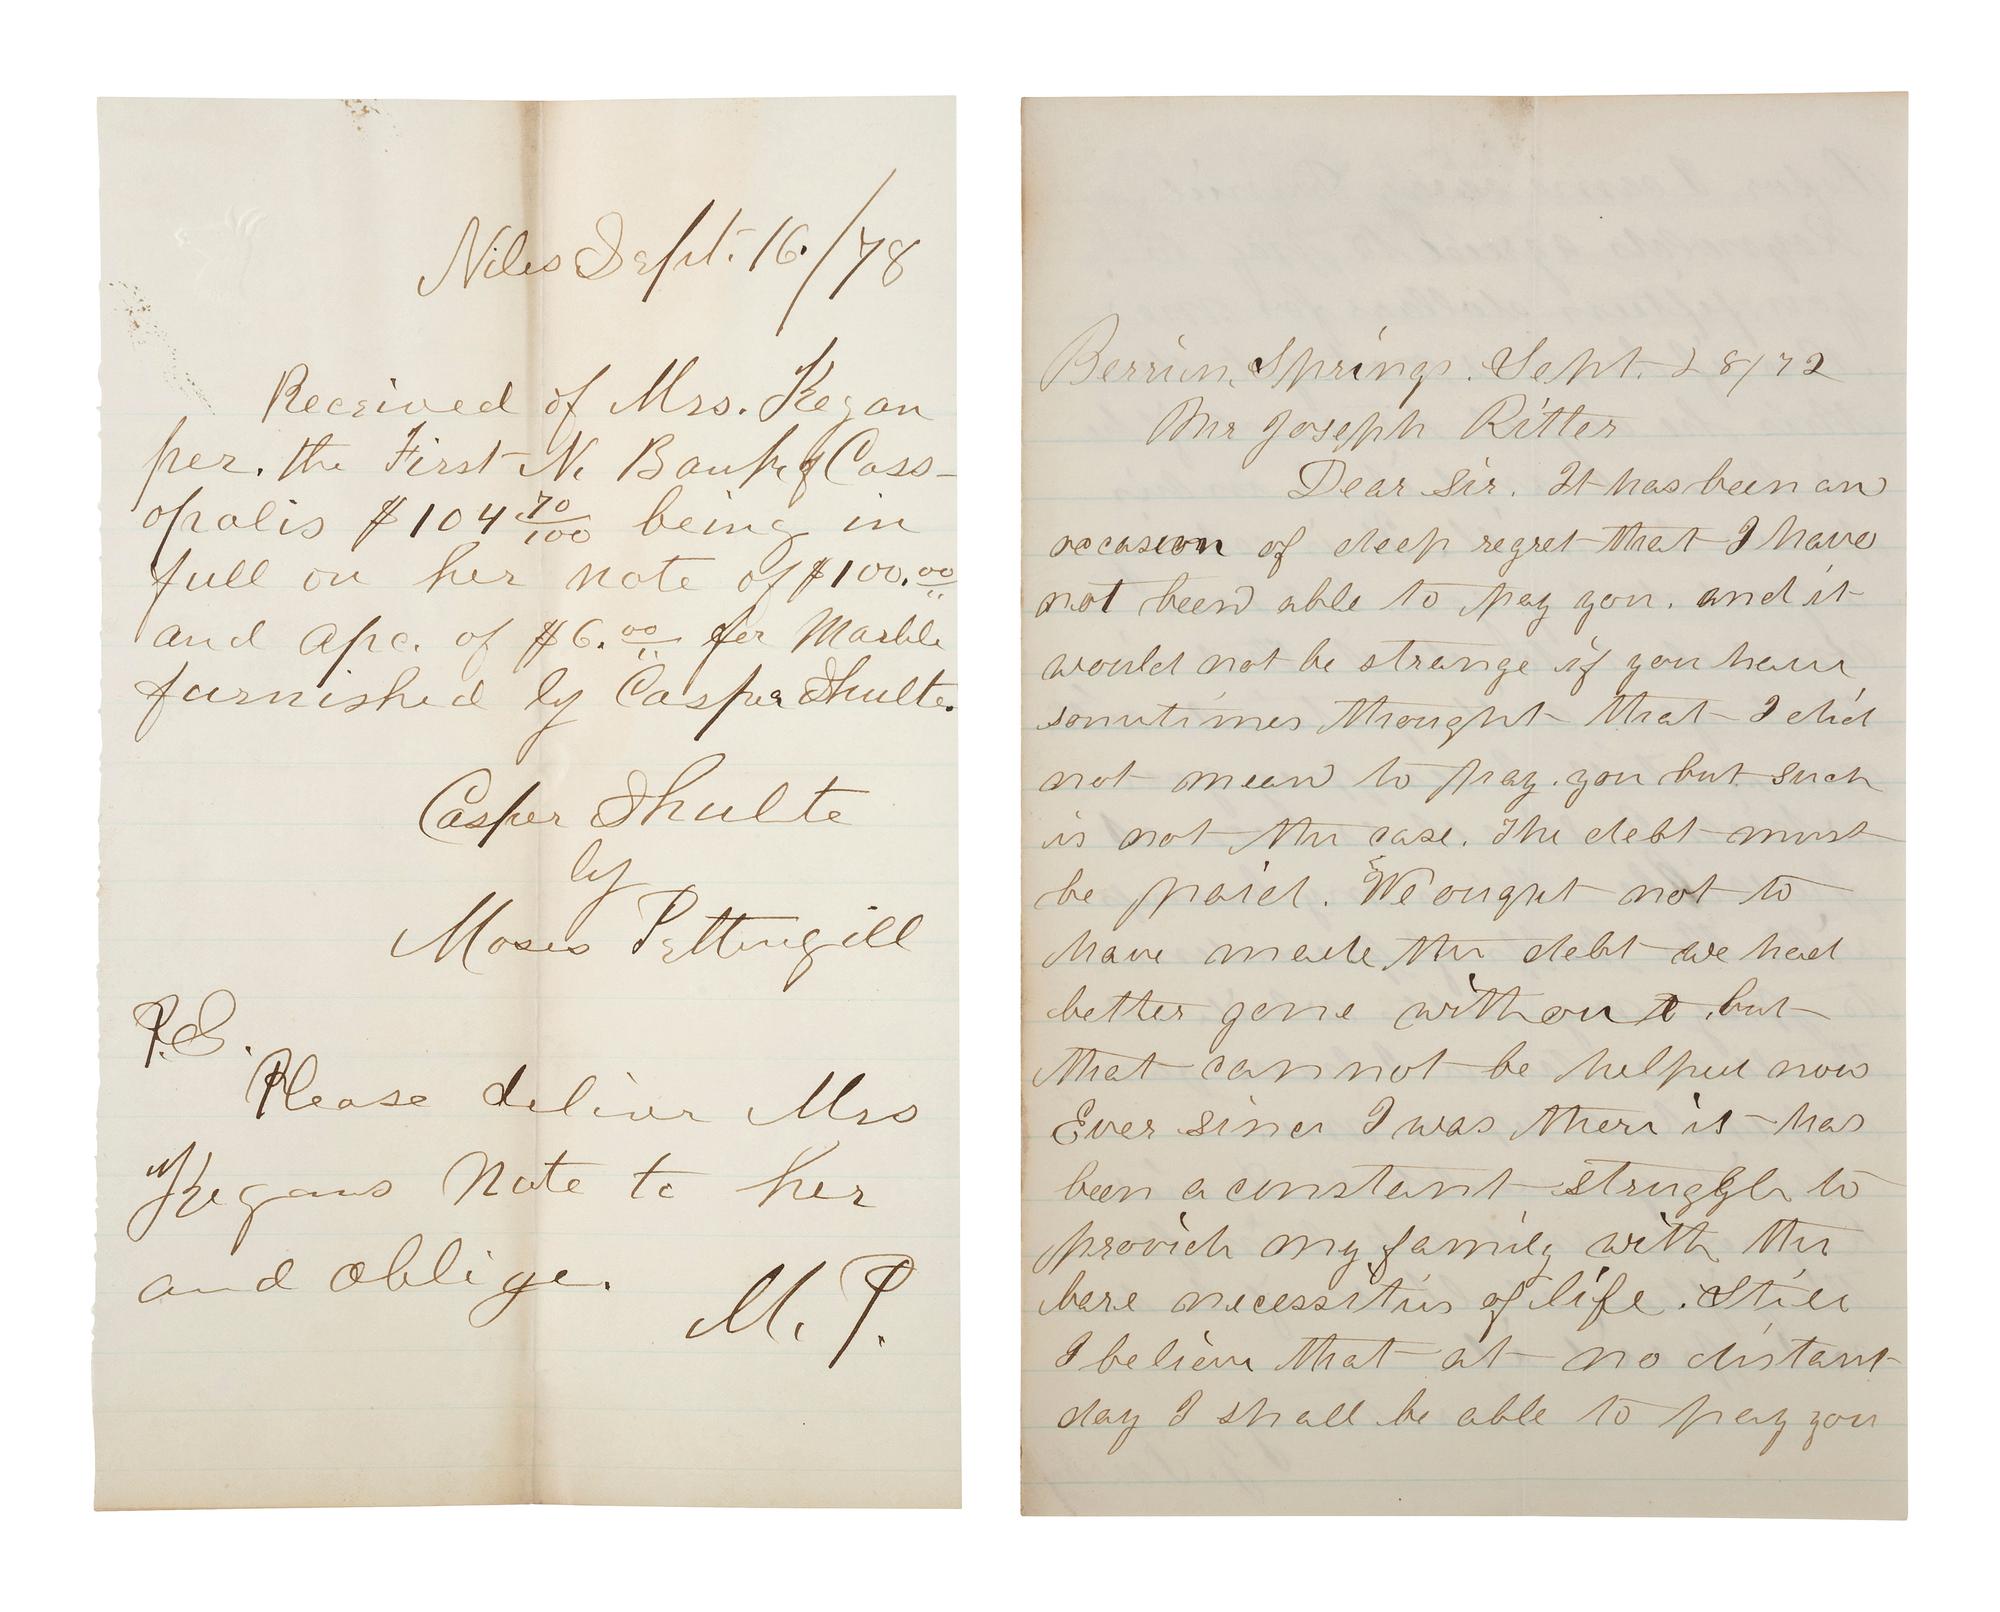 Niles Sept. 16./78
Received of Mrs. Kegan
per. the First N. Bank of Cass-
opolis $104 70/100 being in
full on her note of $100.00
and apc. of $6.00 for Marble
furnished by Casper Shulte.
Casper Shulte
by
Moses Pettengill
P.S.
Please deliver Mrs
Kegans Note to her
and oblige.
M. P.
Berrien Springs. Sept. 28/72
Mr Joseph Ritter
Dear Sir. It has been an
occasion of deep regret that I have
not been able to pay you. and it
would not be strange if you have
sometimes thought that I did
not mean to pay you but such
is not the case. The debt must
be paid. We ought not to
have made the debt we had
better gone without, but
that cannot be helped now
Ever since I was there it has
been a constant struggle to
provide my family with the
bare necessities of life. Still
I believe that at no distant
day I shall be able to pay you